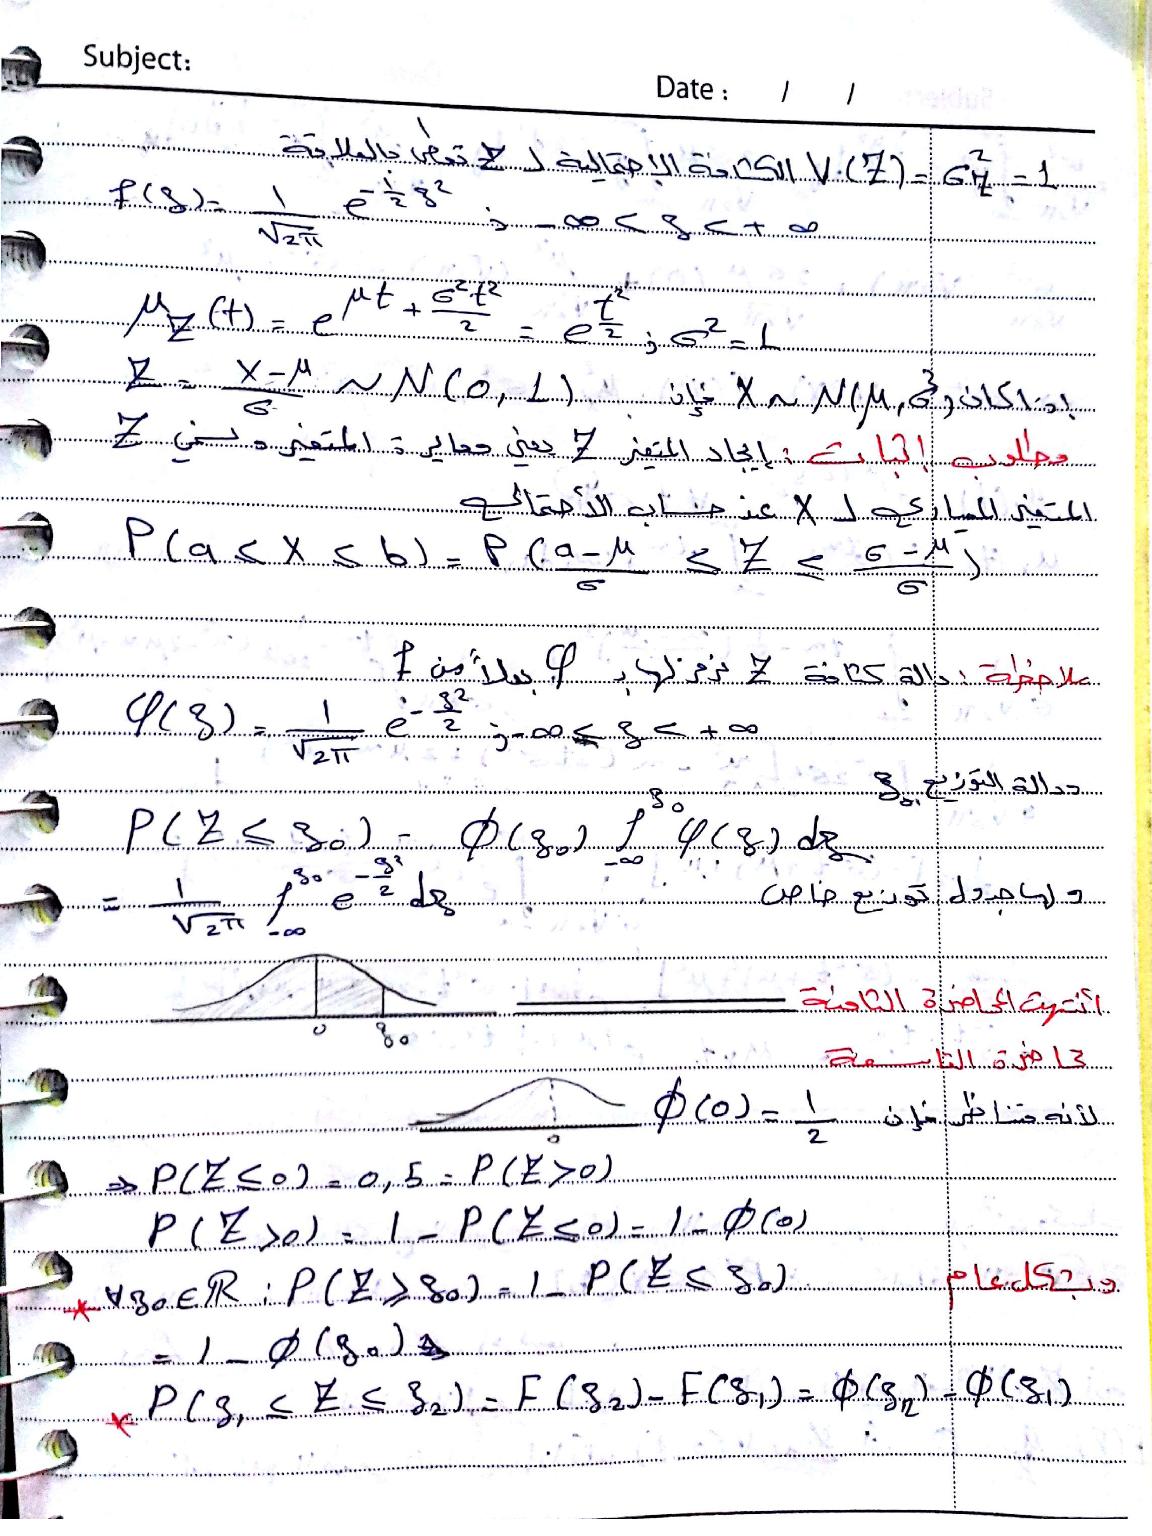 Subject:
Date : / /
V.(Z) = σ²_Z = 1 الكثافة الاحتمالية لـ Z تعطى بالعلاقة
f(z) = 1/√2π e^{-1/2 z²} ; -∞ < z < +∞
μ_Z(t) = e^{μt + σ²t²/2} = e^{t²/2} ; σ² = 1
إذا كان X ~ N(μ, σ²) فإن Z = X-μ/σ ~ N(0, 1)
مطلوب إثبات : إيجاد المتغير Z يعني معايرة المتغير ونسمي Z
المتغير المعياري لـ X عند حساب الأحتمال
P(a ≤ X ≤ b) = P(a-μ/σ ≤ Z ≤ σ-μ/σ)
ملاحظة : دالة كثافة Z نرمز لها بـ φ بدلاً من f
φ(z) = 1/√2π e^{-z²/2} ; -∞ ≤ z < +∞
دالة التوزيع z₀
P(Z ≤ z₀) = Φ(z₀) ∫_{-∞}^{z₀} φ(z) dz
= 1/√2π ∫_{-∞}^{z₀} e^{-z²/2} dz ولها جدول توزيع خاص
أنتهت المحاضرة الثامنة
0 z₀
محاضرة التاسعة
لأنه متناظر فإن Φ(0) = 1/2
0
⇒ P(Z ≤ 0) = 0,5 = P(Z > 0)
P(Z > 0) = 1 - P(Z ≤ 0) = 1 - Φ(0)
وبشكل عام
* ∀z₀ ∈ ℝ : P(Z ≥ z₀) = 1 - P(Z ≤ z₀)
= 1 - Φ(z₀)
* P(z₁ ≤ Z ≤ z₂) = F(z₂) - F(z₁) = Φ(z₂) - Φ(z₁)